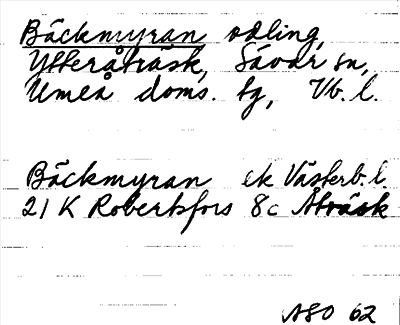 Bäckmyran odling,
Ytteråträsk, Sävar sn,
Umeå doms. tg, Vb. l.
Bäckmyran ek Västerb. l.
21 K Robertsfors 8c Åträsk
ASO 62